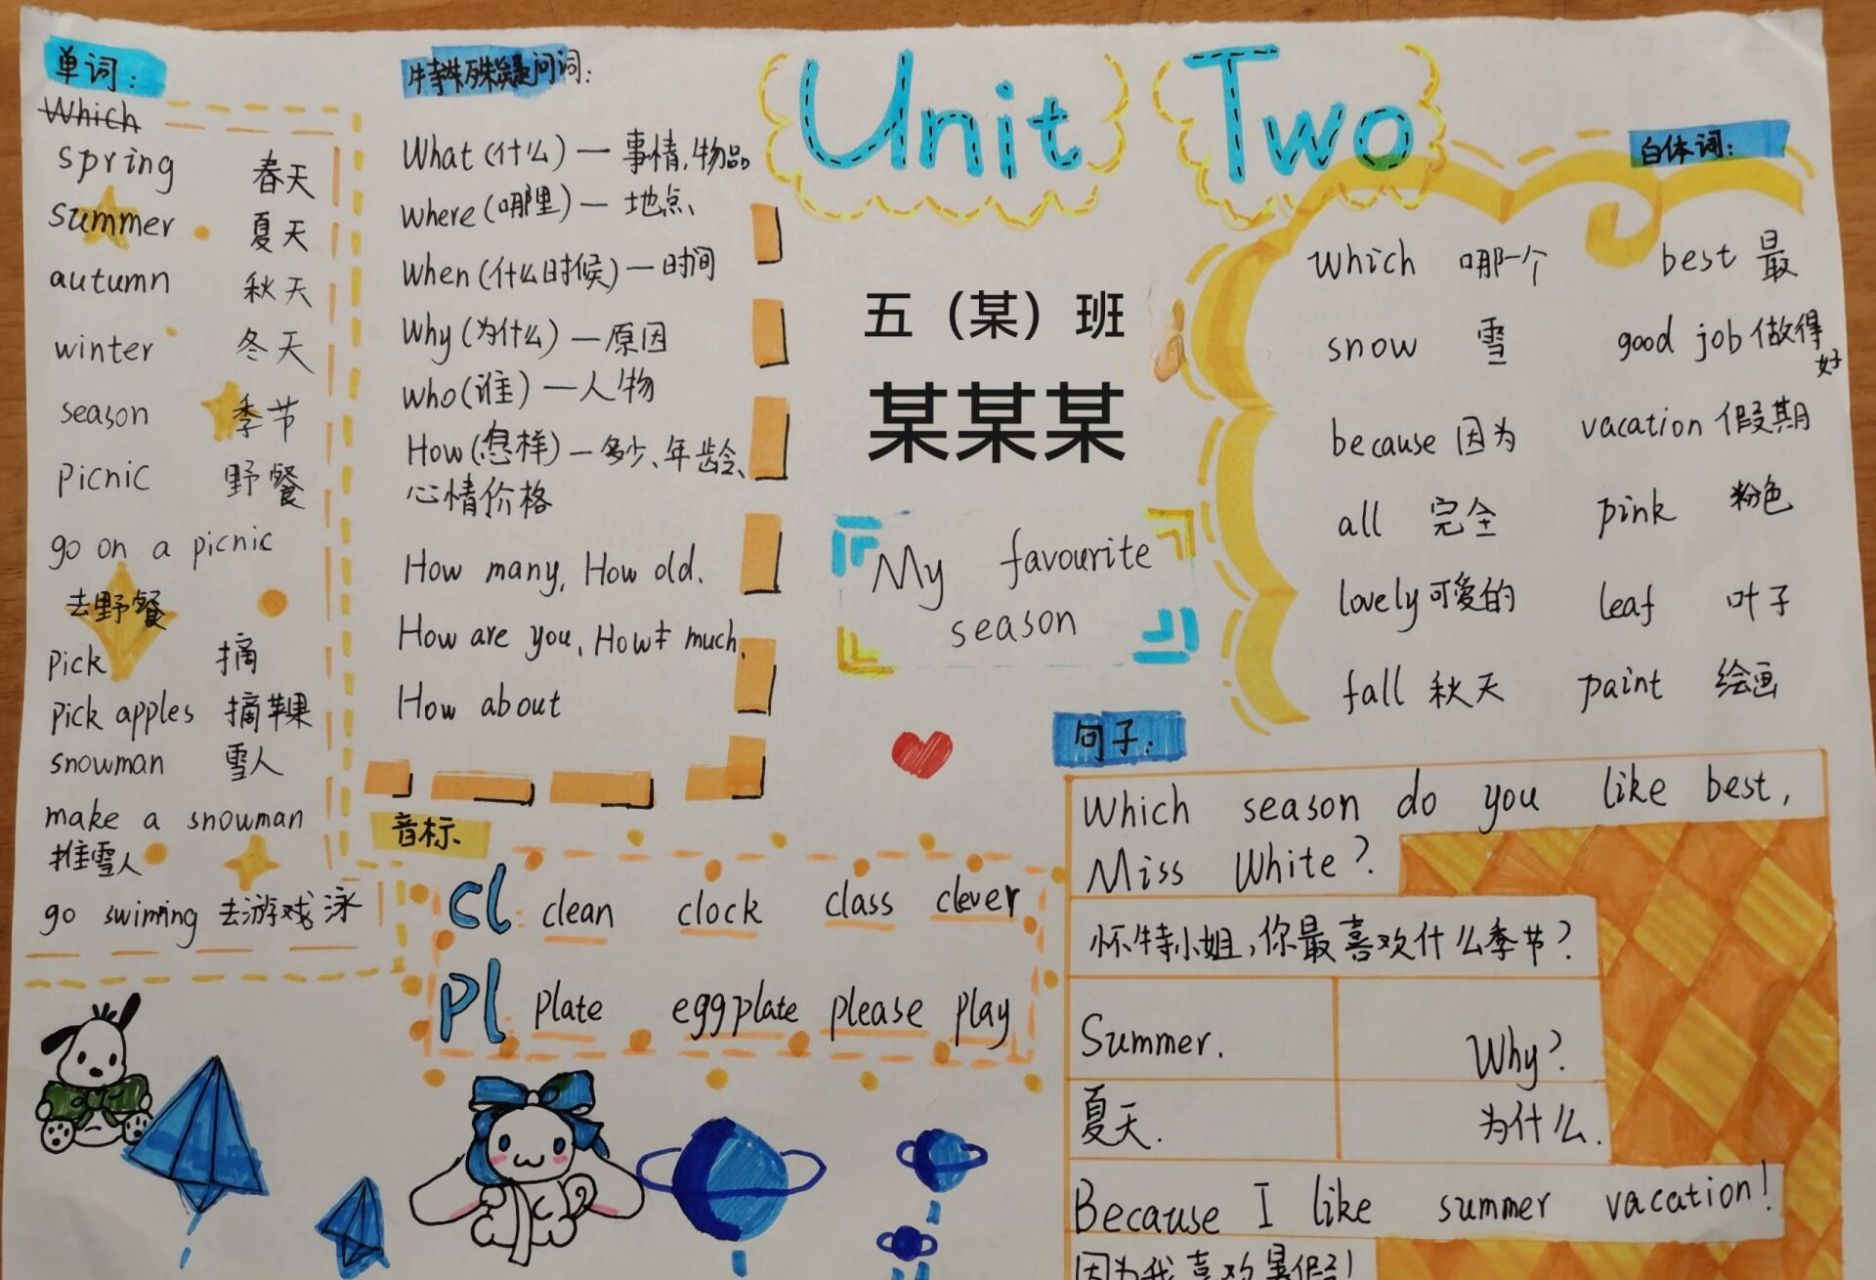 单词：
Which
spring 春天
summer 夏天
autumn 秋天
winter 冬天
season 季节
picnic 野餐
go on a picnic
去野餐
pick 摘
pick apples 摘苹果
snowman 雪人
make a snowman
堆雪人
go swimming 去游戏泳
特殊疑问词：
What (什么) — 事情,物品
where (哪里) — 地点、
When (什么时候) — 时间
Why (为什么) — 原因
who (谁) — 人物
How (怎样) — 多少、年龄、
心情价格
How many, How old.
How are you, How much,
How about
Unit Two
五（某）班
某某某
My favourite
season
白体词：
which 哪一个 best 最
snow 雪 good job 做得好
because 因为 vacation 假期
all 完全 pink 粉色
lovely 可爱的 leaf 叶子
fall 秋天 paint 绘画
音标
cl clean clock class clever
pl plate eggplate please play
句子：
Which season do you like best,
Miss White?
怀特小姐,你最喜欢什么季节?
Summer. Why?
夏天. 为什么.
Because I like summer vacation!
因为我喜欢暑假!